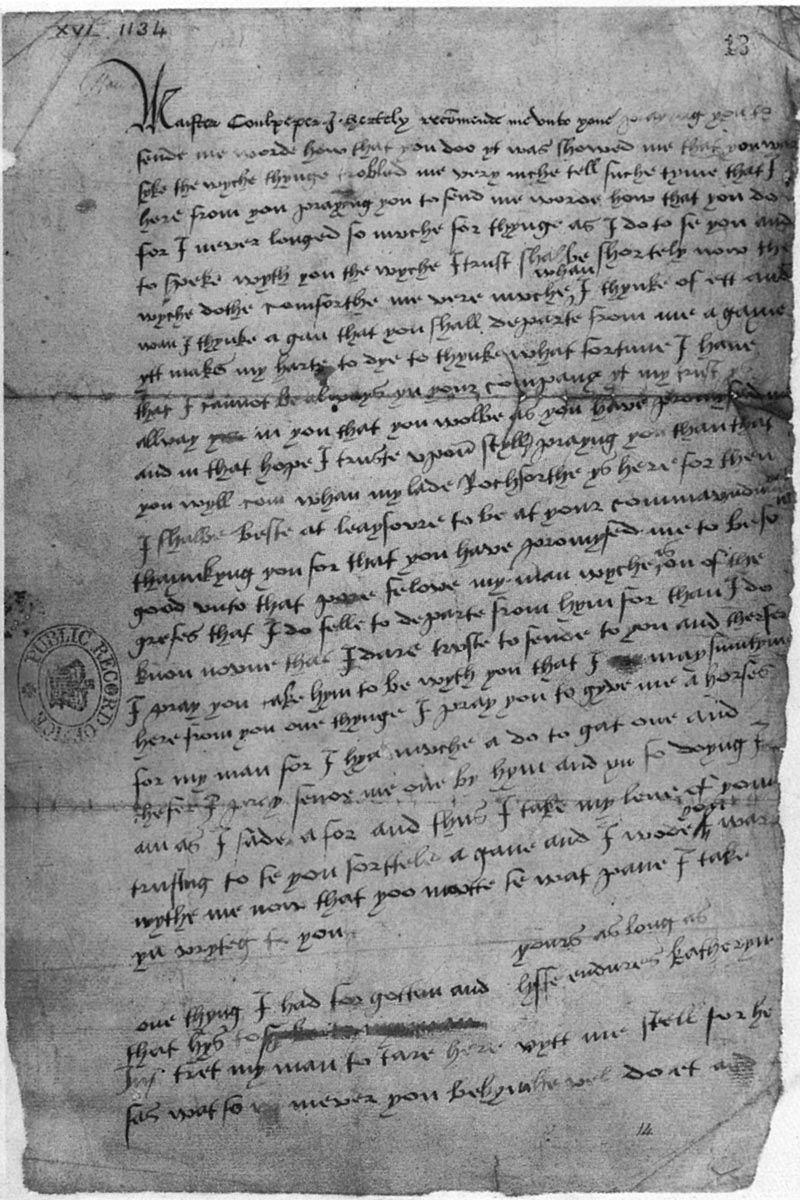 XVI. 1134
13
Maister Coulpeper I hertely recomende me unto youe praying you to
sende me worde how that you doo yt was showed me that you was
syke the wyche thynge trobled me very muche tell suche tyme that I
here from you praying you to send me worde how that you do
for I never longed so muche for thynge as I do to se you and
to speke wyth you the wyche I trust shalbe shortely now the
wyche dothe comforthe me verie muche whan I thynke of ett and
wan I thynke a gan that you shall departe from me a gaine
ytt makes my harte to dye to thynke what fortune I have
that I cannot be always yn your company yt my trust ys
allway in you that you wolbe as you have promysed me
and in that hope I truste upon styll prayng you than that
you wyll com whan my lade Rochforthe ys here for then
I shalbe beste at leaysoure to be at your commandment
thaynkyng you for that you have promysed me to be so
good unto that pore felowe my man wyche is on of the
grefes that I do felle to departe from hym for than I do
know noone that I dare truste to sende to you and therfor
I pray you take hym to be wyth you that I may sumtym
here from you one thynge I pray you to gyve me a horse
for my man for I hyd muche a do to gat one and
thefer I pray sende me one by hym and yn so doyng I
am as I sade afor and thus I take my leve of you
trusting to se you sorttele a gane and I wode you war
wythe me now that yoo maitte se wat pane I take
yn wryteg to you
yours as long as
lyffe endures Katheryn
one thyng I had forgotten and
that hys to
Ins tret my man to tare here wytt me stell for he
sas wat so mever you bed hym he wel do et and
14
PUBLIC RECORD OFFICE